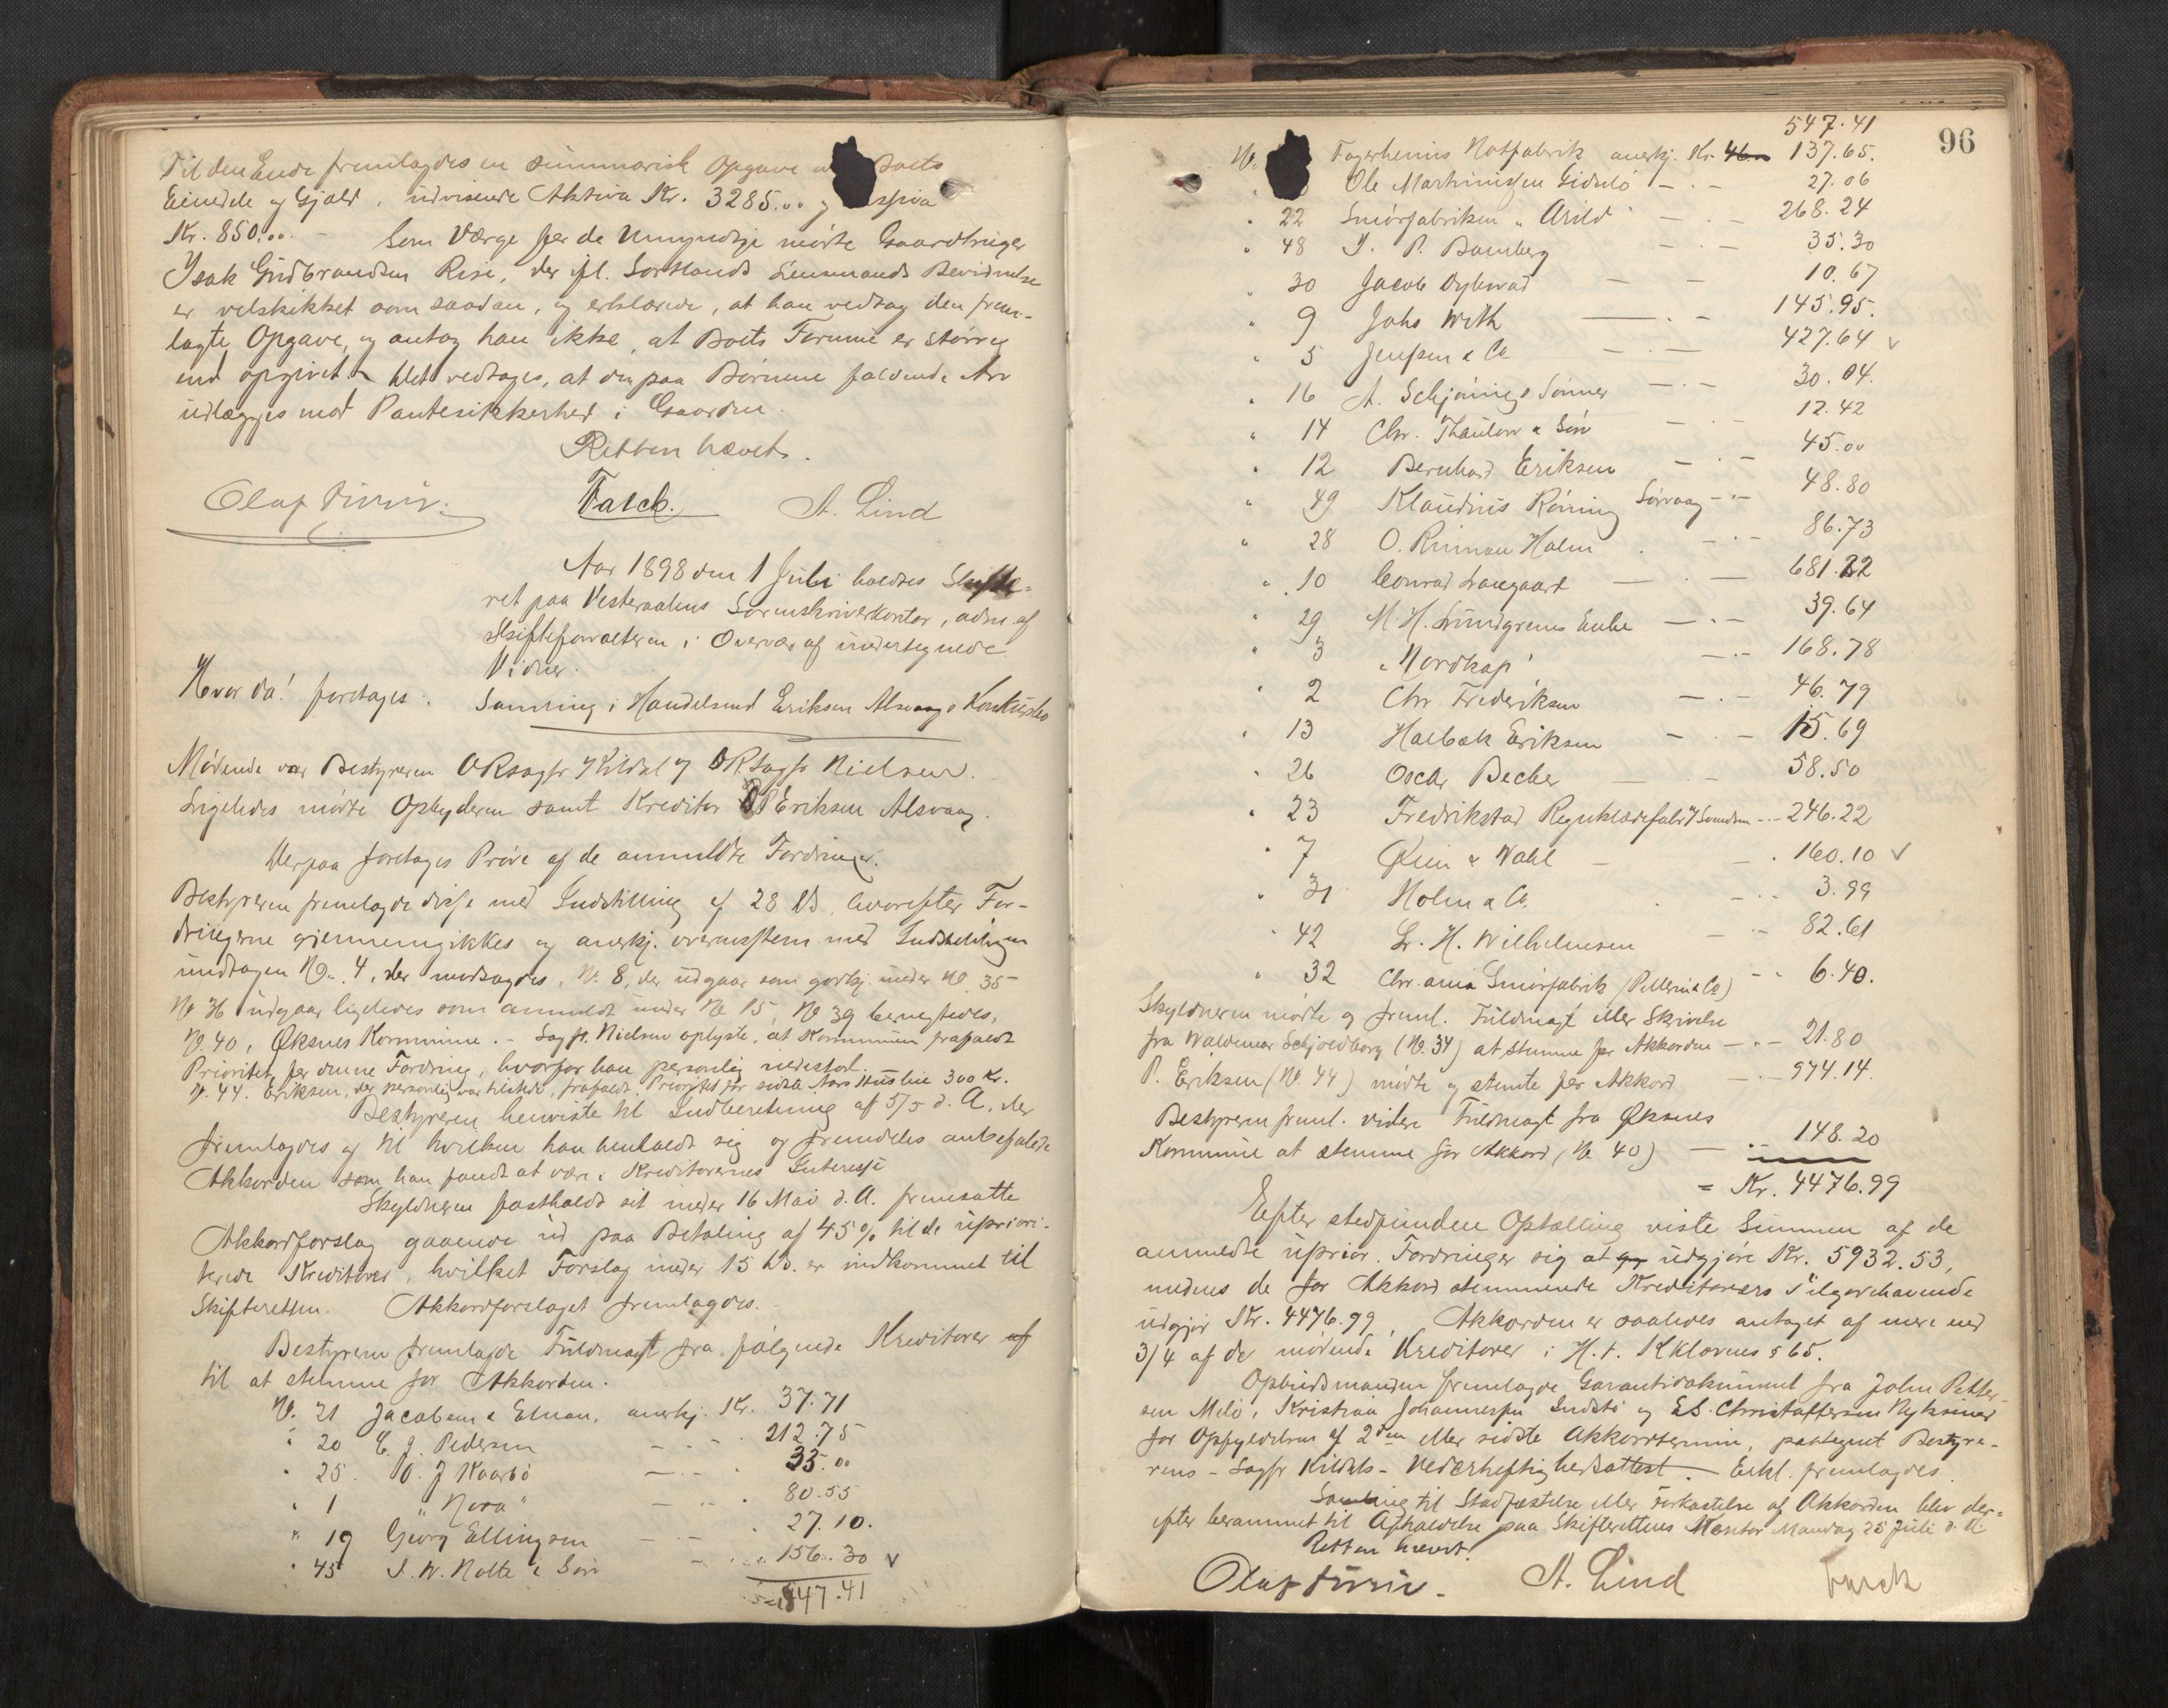 Til den Ende fremlagdes en summarisk Opgave Boets
Eiendele og Gjæld, udvisende Aktiva Kr. 3285.00 og
Kr. 850.00. - Som Værge for de Umyndige mødte Gaardbruger
Isak Gudbrandsen Rise, der ifl. Sortlands Lensmands Bevidnelse
er velskikket som saadan, og erklærede, at han vedtog den frem-
lagte Opgave, og antog han ikke, at Boets Formue er større
end opgivet. Det vedtoges, at den paa Børnene faldende Arv
udlægges mod Pantesikkerhed i Gaarden.
Retten hævet.
Olaf Falck. A. Lind
Aar 1898 den 1 Juli holdtes Skifte-
ret paa Vesteraalens Sorenskriverkontor, adm. af
Skifteforvalteren i Overvær af undertegnede
Vidner.
Hvor da! foretages: Samling i Handelsmd Eriksen Alsvaags Konkursbo
Mødende var Bestyreren ORsagfr Kildal og ORsagfr Nielsen.
Ligeledes mødte Opbyderen samt Kreditor P Eriksen Alsvaag.
Derpaa foretages Prøve af de anmeldte Fordringer.
Bestyreren fremlagde disse med Indstilling af 28 ds. hvorefter For-
dringerne gjennemgikkes og anerkj. overensstem. med Indstillingen
undtagen No. 4, der modsagdes, No. 8, der udgaar som godkj. under No 35
No 36 udgaar ligeledes som anmeldt under No 15, No 39 benegtedes,
No. 40, Øksnes Kommune. - Sagfr. Nielsen oplyste, at Kommunen frafaldt
Prioritet for denne Fordring, hvorfor han personlig indestod.
No. 44. Eriksen, der personlig var tilstede, frafaldt Prioritet for sidste Aars Husleie 300 Kr.
Bestyreren henviste til Indberetning af 5/5 d. A, der
fremlagdes og til hvilken han henholdt sig og fremdeles anbefalede
Akkorden som han fandt at være i Kreditorernes Interesse
Skyldneren fastholdt sit under 16 Mai d. A. fremsatte
Akkordforslag gaaende ud paa Betaling af 45% til de upriori-
terede Kreditorer, hvilket Forslag under 15 ds. er indkommet til
Skifteretten. Akkordforslaget fremlagdes.
Bestyreren fremlagde Fuldmagt fra følgende Kreditorer af
til at stemme for Akkorden.
No. 21 Jacobsen & Elnan, anerkj. Kr. 37.71
" 20 C. J. Pedersen - 212.75
" 25. O. J Kaarbø - 35.00
" 1 "Nora" - 80.55
" 19 Georg Ellingsen - 27.10.
" 45 S. W. Nolte & Søn - 156.30 v
547.41
96
547.41
No. Fagerheims Notfabrik anerkj. Kr. 137.65.
Ole Martinussen Gidslø - 27.06
" 22 Smørfabriken "Arild" - 268.24
" 48 J. P. Bamberg - 35.30
" 30 Jacob Dybwad - 10.67
" 9 Johs With - 145.95.
" 5 Jenssen & Co - 427.64 v
" 16 A. Schjønings Sønner - 30.04.
" 14 Chr. Thaulow & Søn - 12.42
" 12 Bernhard Eriksen - 45.00
" 49 Klaudius Rønning Sørvaag - 48.80
" 28 O. Rinnan Holm - 86.73
" 10 Conrad Langaard - 681.22
" 29 M. H. Lundgrens Enke - 39.64
" 3 "Nordkap" - 168.78
" 2 Chr Frederiksen - 46.79
" 13 Halbek Eriksen - 15.69
" 26 Oscar Becher - 58.50
" 23 Fredrikstad - 246.22
" 7 Øien & Wahl - 160.10 v
" 31 Holm & Co. - 3.99
" 42 Lr. H. Wilhelmsen - 82.61
" 32 Chr.ania Smørfabrik (Pellerin & Co) - 6.40.
Skyldneren mødte og freml. Fuldmagt eller Skrivelse
fra Waldemar Schjoldborg (No. 34) at stemme for Akkorden - 21.80
P. Eriksen (No. 44) mødte og stemte for Akkord - 974.14.
Bestyreren freml. videre Fuldmagt fra Øksnes
Kommune at stemme for Akkord (No. 40) - 148.20
= Kr. 4476.99
Efter stedfunden Optælling viste Summen af de
anmeldte uprior. Fordringer sig at udgjøre Kr. 5932.53,
medens de for Akkord stemmende Kreditorers Tilgodehavende
udgjør Kr. 4476.99. Akkorden er saaledes antaget af mere end
3/4 af de mødende Kreditorer i H. t. Kklovens § 65.
Opbudsmanden fremlagde Garantidokument fra John Petter-
sen Melø, Kristian Johannessen Indstø og E.S. Christoffersen Nyksund
for Opfyldelsen af 2den eller sidste Akkordtermin, paategnet Bestyre-
rens - Sagfr Kildals - Vederheftighedsattest. Erkl. fremlagdes.
Samling til Stadfæstelse eller Forkastelse af Akkorden blev der-
efter berammet til Afholdelse paa Skifterettens Kontor Mandag 25 Juli d. A.
Retten hævet.
Olaf A. Lind Falck